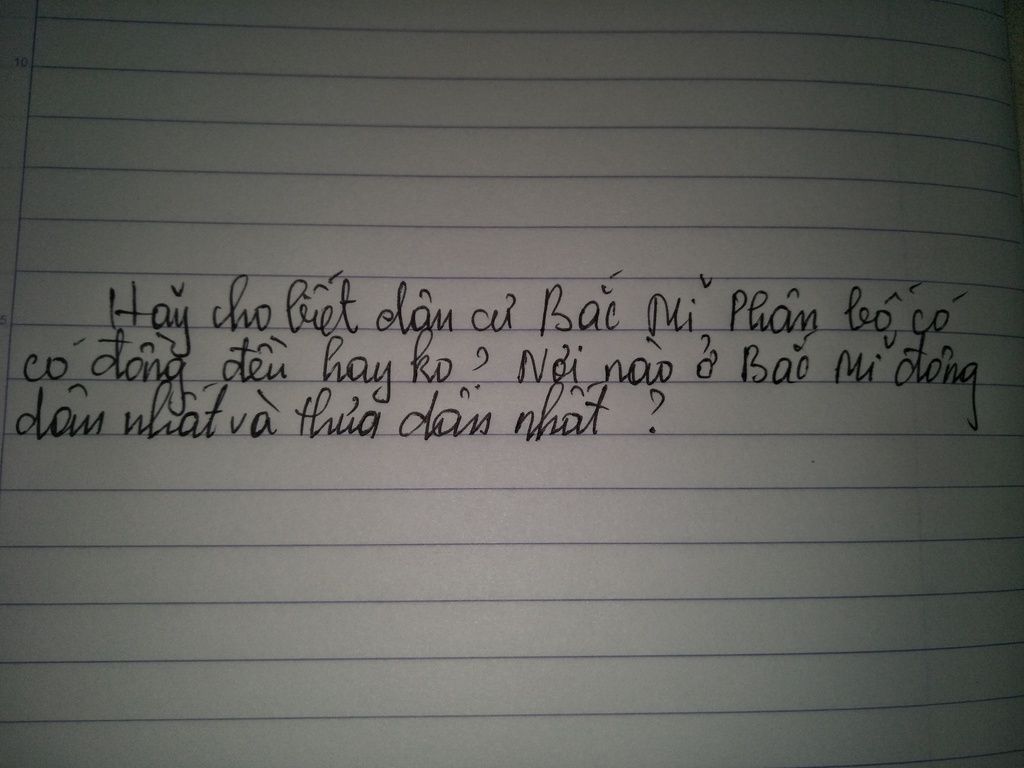 10
Hãy cho biết dân cư Bắc Mĩ Phân bố, có
5
có đồng đều hay ko? Nơi nào ở Bắc Mĩ đông
dân nhất và thưa dân nhất ?